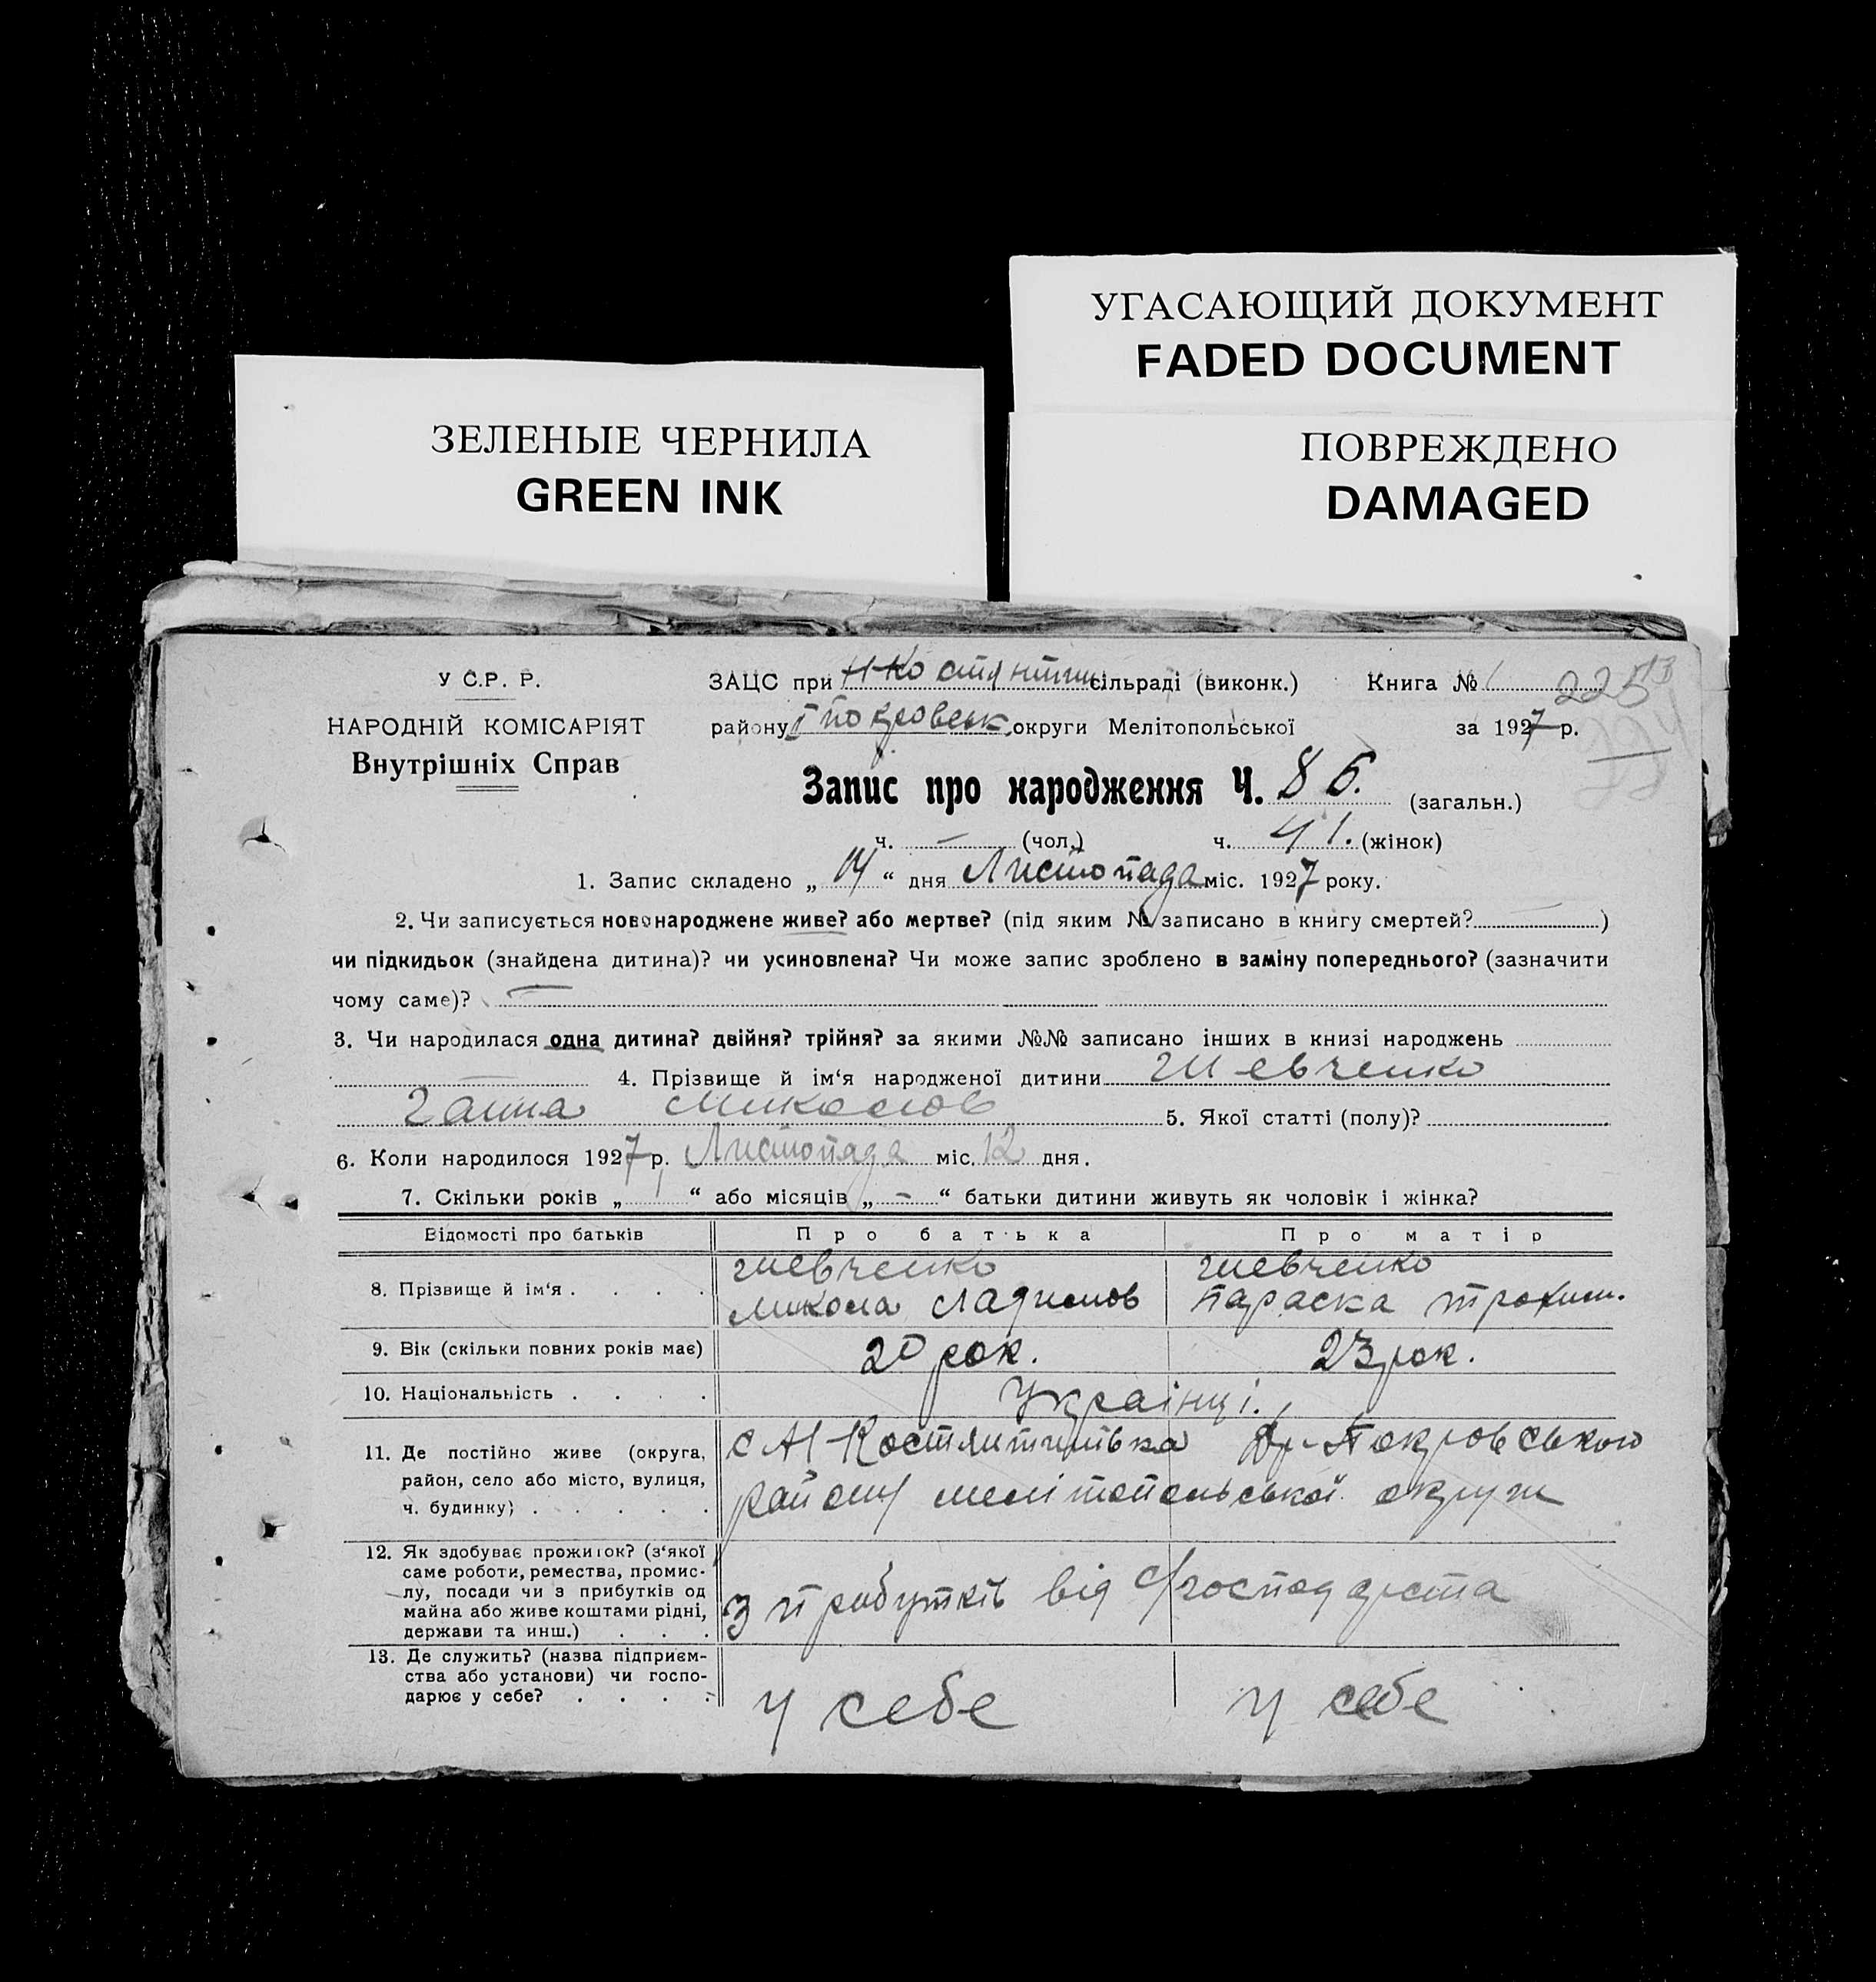 УГАСАЮЩИЙ ДОКУМЕНТ
FADED DOCUMENT
ЗЕЛЕНЫЕ ЧЕРНИЛА
GREEN INK
ПОВРЕЖДЕНО
DAMAGED
У С.Р. Р.
НАРОДНІЙ КОМІСАРІЯТ
Внутрішніх Справ
ЗАЦС при сільраді (виконк.) Книга № 1 225
району покровськ. округи Мелітопольської за 1927 р.
Запис про народження Ч. 86. (загальн.)
ч. — (чол.) ч. 41. (жінок)
1. Запис складено „ 14 “ дня Листопада міс. 1927 року.
2. Чи записується новонароджене живе? або мертве? (під яким № записано в книгу смертей? )
чи підкидьок (знайдена дитина)? чи усиновлена? Чи може запис зроблено в заміну попереднього? (зазначити
чому саме)? —
3. Чи народилася одна дитина? двійня? трійня? за якими №№ записано інших в книзі народжень
— 4. Прізвище й ім‘я народженої дитини Шевченко
Ганна Миколов 5. Якої статті (полу)?
6. Коли народилося 1927 р. Листопада міс. 12 дня.
7. Скільки років „ 1 “ або місяців „ - “ батьки дитини живуть як чоловік і жінка?
Відомості про батьків Про батька Про матір
8. Прізвище й ім‘я . . . . Шевченко Шевченко
Микола Ладимов Параска Трохим.
9. Вік (скільки повних років має) 20 рок. 23 рок.
10. Національність . . . . Українці.
11. Де постійно живе (округа, район, село або місто, вулиця, ч. будинку) . . . . .
с Н Костянтинівка Покровського
району мелітопольської округи
12. Як здобуває прожиток? (з‘якої
саме роботи, ремества, промис-
лу, посади чи з прибутків од
майна або живе коштами рідні,
держави та инш.) . . .
З прибутків від с/господарста
13. Де служить? (назва підприєм-
ства або установи) чи госпо-
дарює у себе? . . . .
у себе у себе